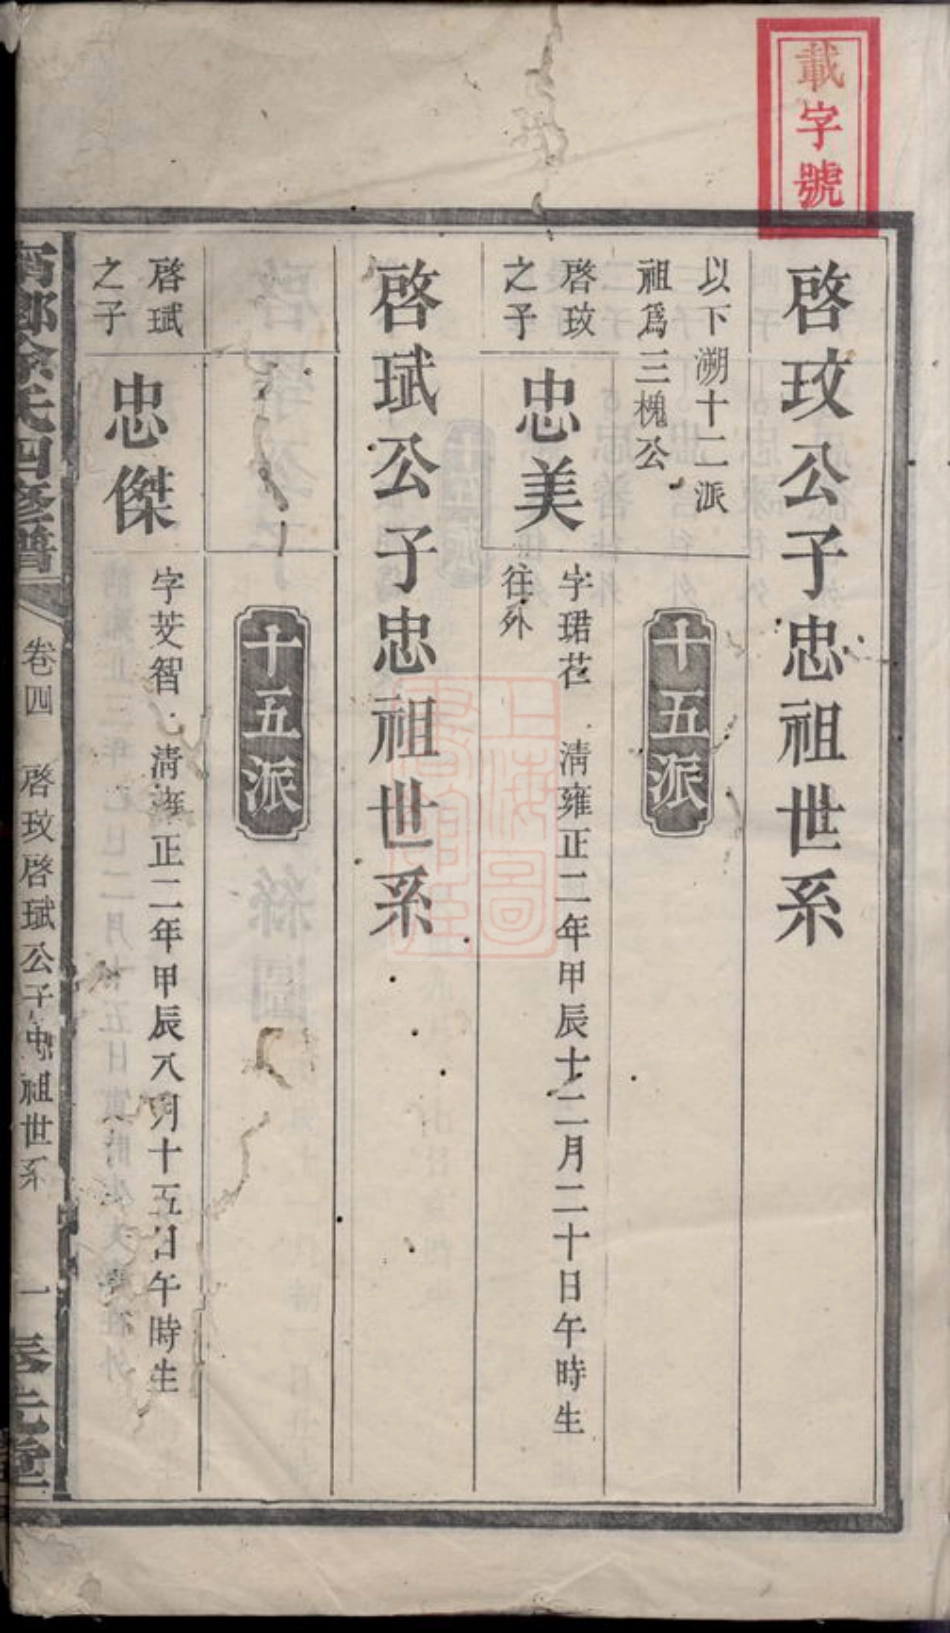 載字號
啓玟公子忠祖世系
以下溯十二派
祖爲三槐公
十五派
啓玟
之子
忠美
字珺花 淸雍正二年甲辰十二月二十日午時生
往外
啓珷公子忠祖世系
十五派
啓珷
之子
忠傑
字芠智 淸雍正二年甲辰八月十五日午時生
氏四修譜
卷四
啓玟啓珷公子忠祖世系
一
堂
上海圖
書館藏